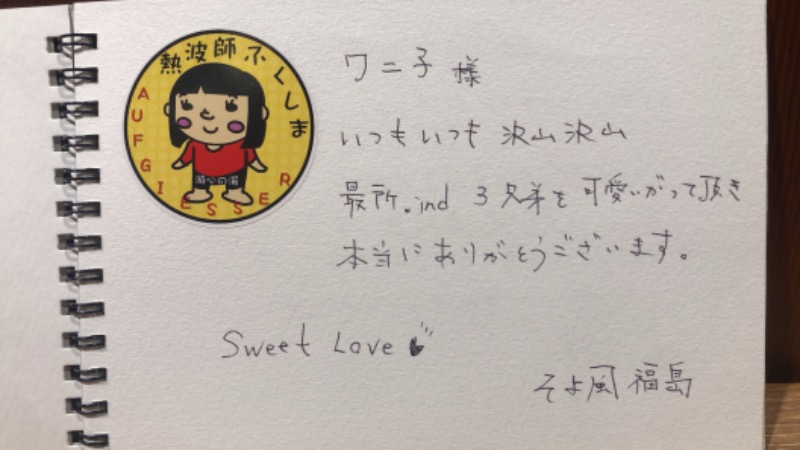 熱波師ふくしま
AUFGIESSER
ワニ子 様
いつもいつも 沢山沢山
最所.ind 3兄弟を可愛いがって頂き
本当にありがとうございます。
Sweet Love
そよ風 福島